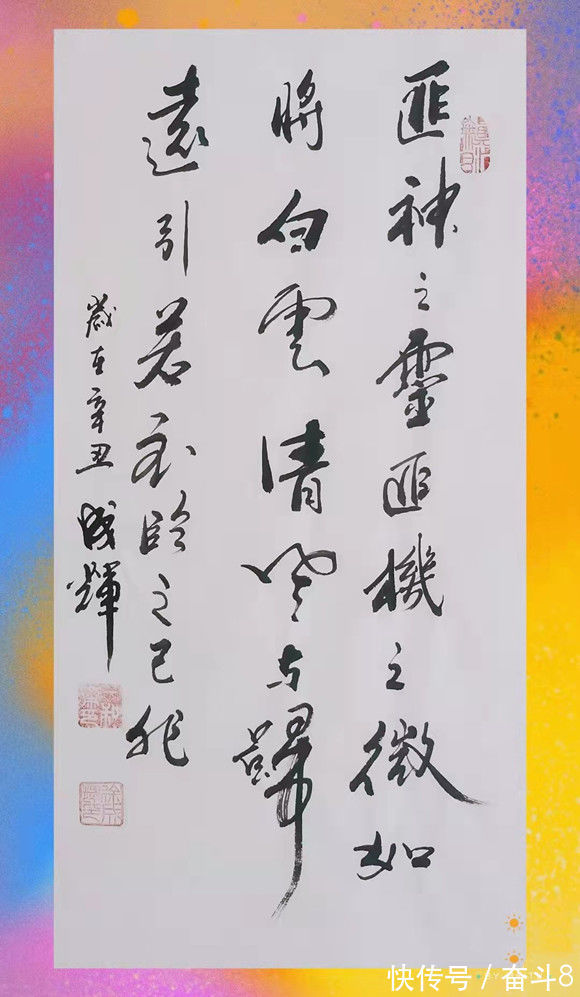 匪神之靈匪機之微如
將白雲清風与歸
遠引若至臨之已非
歲在辛丑 成輝
快传号 / 奋斗8